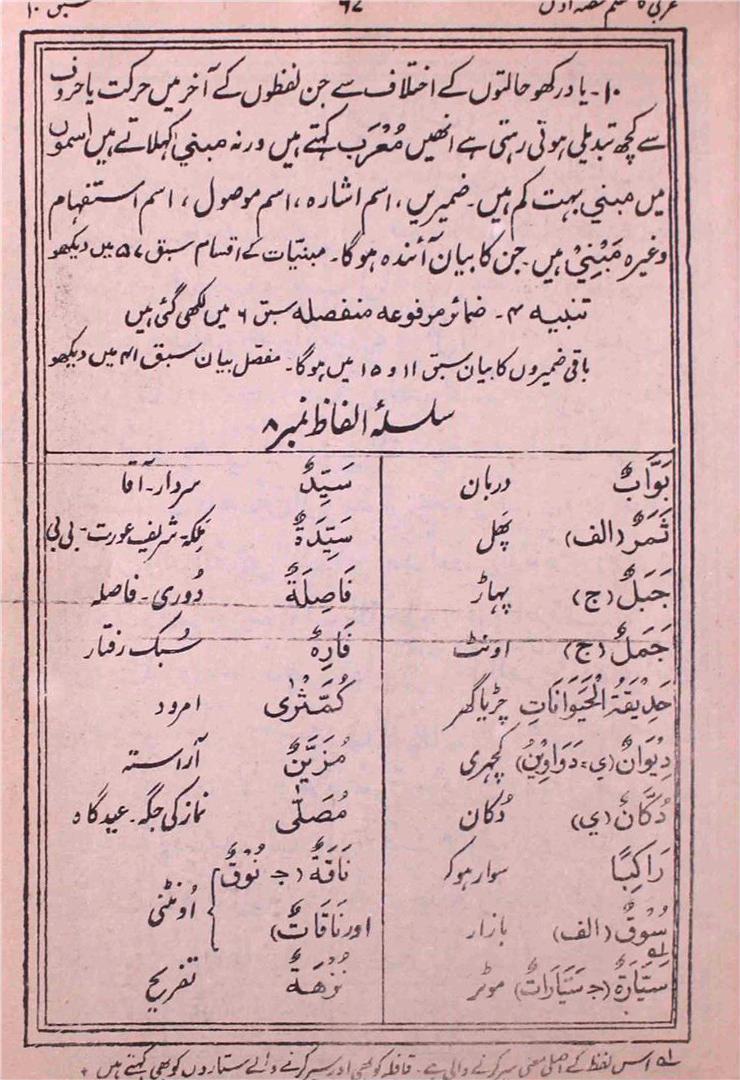 سبق ۱۰
۶۷
عربی کا معلم حصہ اول
۱۰۔ یاد رکھو حالتوں کے اختلاف سے جن لفظوں کے آخر میں حرکت یا حروف
سے کچھ تبدیلی ہوتی رہتی ہے انھیں مُعْرَب کہتے ہیں ورنہ مبني کہلاتے ہیں اسموں
میں مبني بہت کم ہیں۔ ضمیریں، اسم اشارہ، اسم موصول، اسم استفہام
وغیرہ مَبْنِيْ ہیں۔ جن کا بیان آئندہ ہوگا۔ مبنیّات کے اقسام سبق ۵۷ میں دیکھو
تنبیہ ۴۔ ضمائر مرفوعہ منفصلہ سبق ۶ میں لکھی گئی ہیں
باقی ضمیروں کا بیان سبق ۱۱ و ۱۵ میں ہوگا۔ مفصّل بیان سبق ۴۱ میں دیکھو
سلسلۂ الفاظ نمبر ۸
بَوَّابٌ دربان
ثَمَرٌ (الف) پَھل
جَبَلٌ (ج) پہاڑ
جَمَلٌ (ج) اونٹ
حَدِيْقَةُ الْحَيَوَانَاتِ چڑیا گھر
دِيْوَانٌ (ي = دَوَاوِيْنُ) کچہری
دُكَّانٌ (ي) دُکان
رَاكِبًا سوار ہوکر
سُوْقٌ (الف) بازار
سَيَّارَةٌ (ج سَيَّارَاتٌ) موٹر
سَيِّدٌ سردار۔ آقا
سَيِّدَةٌ مَلِکَہ شریف عورت۔ بی بی
فَاصِلَةٌ دُوری۔ فاصلہ
فَارِهٌ سُبک رفتار
كُمَّثْرٰى امرود
مُزَيَّنٌ آراستہ
مُصَلًّى نماز کی جگہ۔ عیدگاہ
نَاقَةٌ (ج نُوْقٌ
اور نَاقَاتٌ) اُونٹنی
نُزْهَةٌ تفریح
لہ اس لفظ کے اصلی معنی سیر کرنے والی ہے۔ قافلہ کو بھی اور سیر کرنے والے ستاروں کو بھی کہتے ہیں +